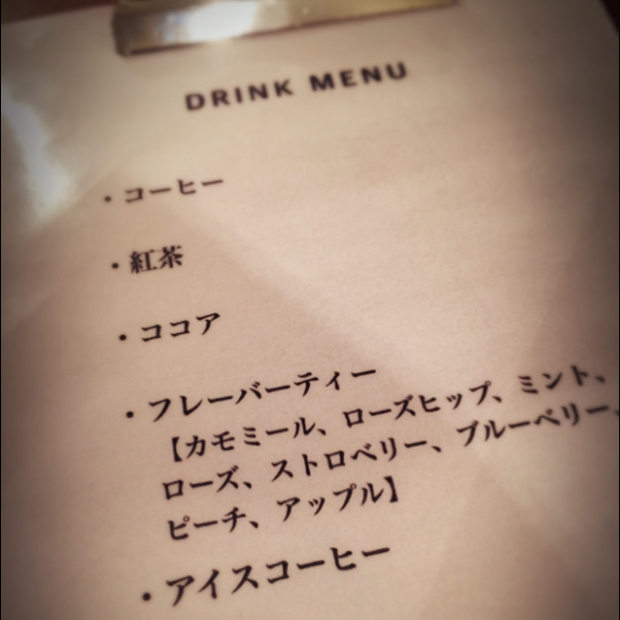 DRINK MENU
・コーヒー
・紅茶
・ココア
・フレーバーティー
【カモミール、ローズヒップ、ミント、
ローズ、ストロベリー、ブルーベリー、
ピーチ、アップル】
・アイスコーヒー